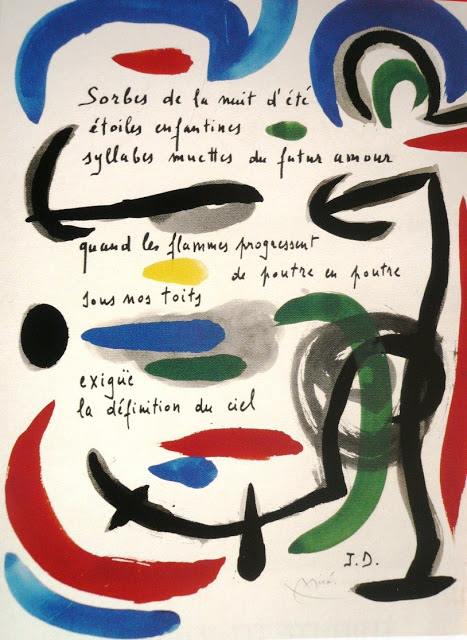 Sorbes de la nuit d'été
étoiles enfantines
syllabes muettes du futur amour
quand les flammes progressent
de poutre en poutre
sous nos toits
exigüe
la définition du ciel
J.D.
Miró.